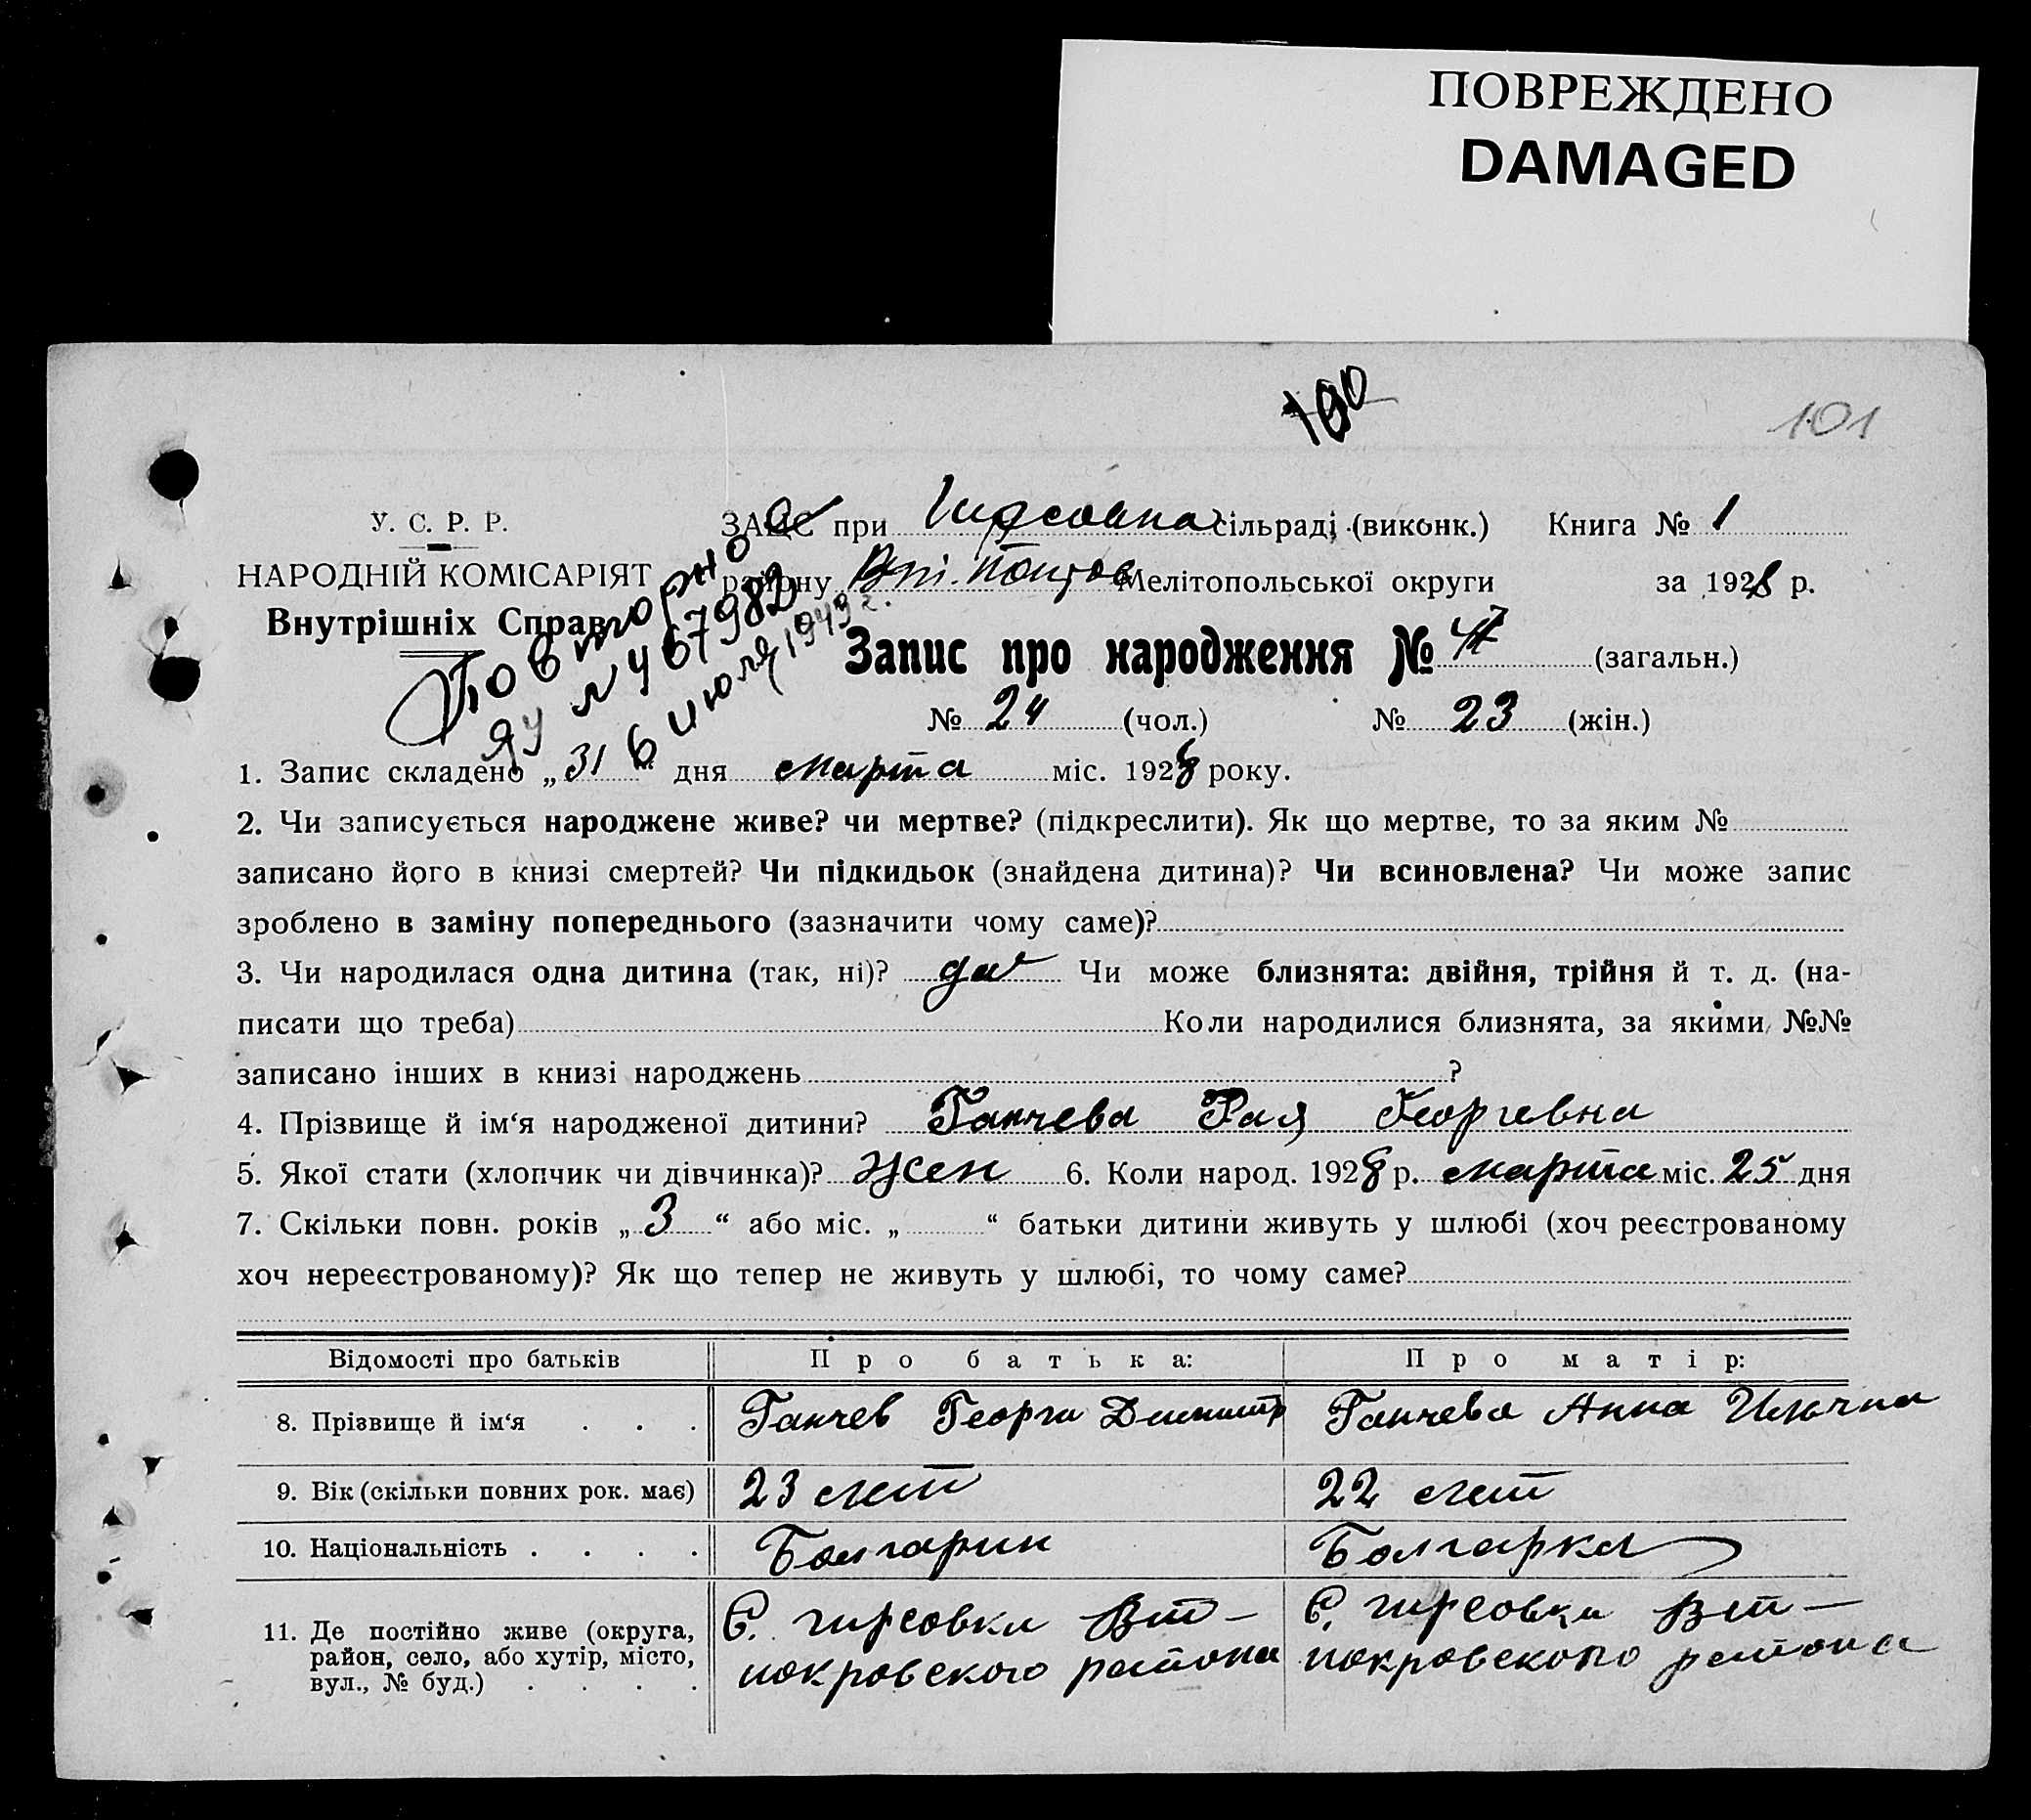 ПОВРЕЖДЕНО
DAMAGED
100
101
У. С. Р. Р.
НАРОДНІЙ КОМІСАРІЯТ
Внутрішніх Справ
ЗАЦС при сільраді (виконк.) Книга № 1
району Мелітопольської округи за 1928 р.
Повторно
ЯУ № 467982
6 июля 1949 г.
Запис про народження № 47 (загальн.)
№ 24 (чол.) № 23 (жін.)
1. Запис складено „31“ дня марта міс. 1928 року.
2. Чи записується народжене живе? чи мертве? (підкреслити). Як що мертве, то за яким №
записано його в книзі смертей? Чи підкидьок (знайдена дитина)? Чи всиновлена? Чи може запис
зроблено в заміну попереднього (зазначити чому саме)?
3. Чи народилася одна дитина (так, ні)? да Чи може близнята: двійня, трійня й т. д. (на-
писати що треба) Коли народилися близнята, за якими №№
записано інших в книзі народжень ?
4. Прізвище й ім‘я народженої дитини? Ганчева Рая Георгевна
5. Якої стати (хлопчик чи дівчинка)? жен 6. Коли народ. 1928 р. марта міс. 25 дня
7. Скільки повн. років „3“ або міс. „ “ батьки дитини живуть у шлюбі (хоч реєстрованому
хоч нереєстрованому)? Як що тепер не живуть у шлюбі, то чому саме?
Відомості про батьків Про батька: Про матір:
8. Прізвище й ім‘я . . . Ганчев Георги Димитр Ганчева Анна Илична
9. Вік (скільки повних рок. має) 23 лет 22 лет
10. Національність . . . . Болгарин Болгарка
11. Де постійно живе (округа, район, село, або хутір, місто, вул., № буд.) . . . . С. гирсовка Вт- С. гирсовка Вт-
покровского района покровского района